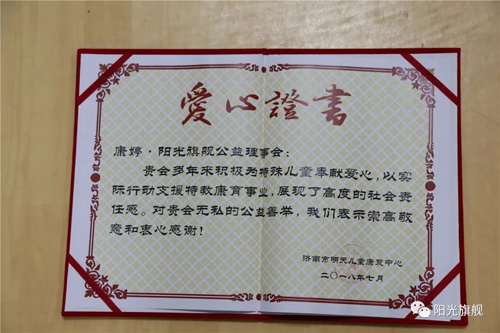 愛心證書
康婷·阳光旗舰公益理事会：
贵会多年来积极为特殊儿童奉献爱心，以实
际行动支援特教康育事业，展现了高度的社会责
任感。对贵会无私的公益善举，我们表示崇高敬
意和衷心感谢！
济南市明天儿童康复中心
二〇一八年七月
阳光旗舰